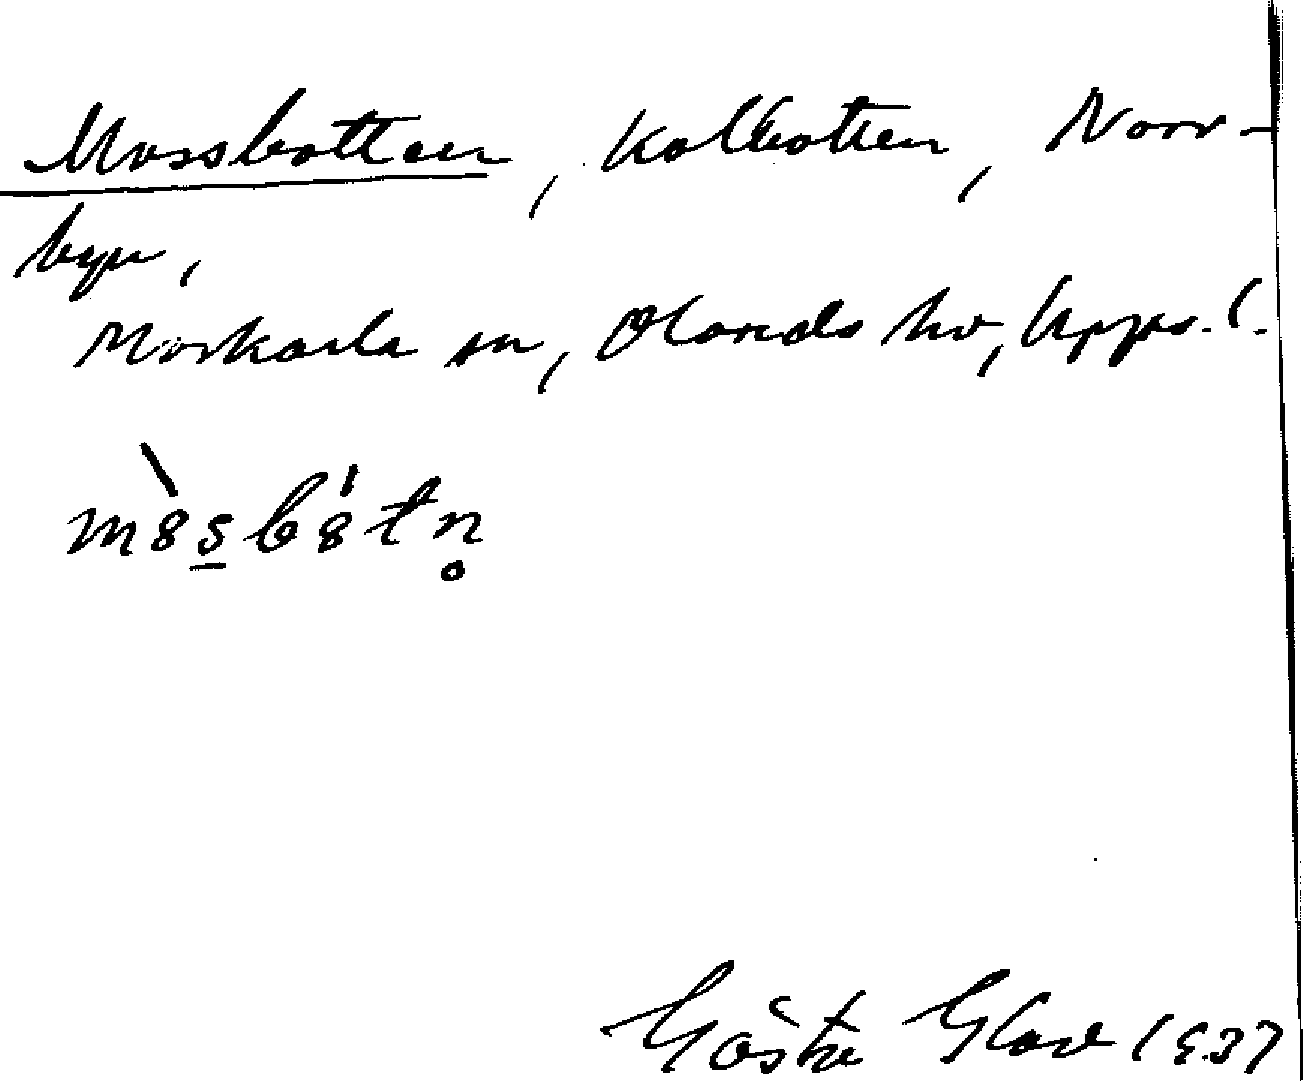 Mossbotten, Kolbotten, Norr-
byn,
Morkarla sn, Olands hd, Upps. l.
mòsbótn̥
Gösta 1937